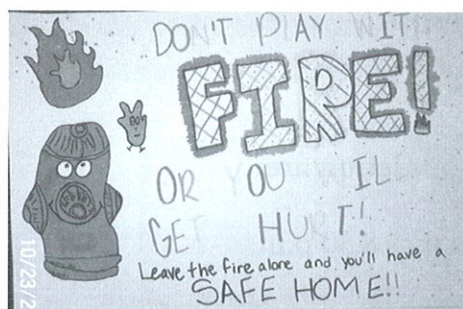 DON'T PLAY WIT
FIRE!
OR OU IL
GET HURT!
Leave the fire alone and you'll have a
SAFE HOME!!
10/23/2